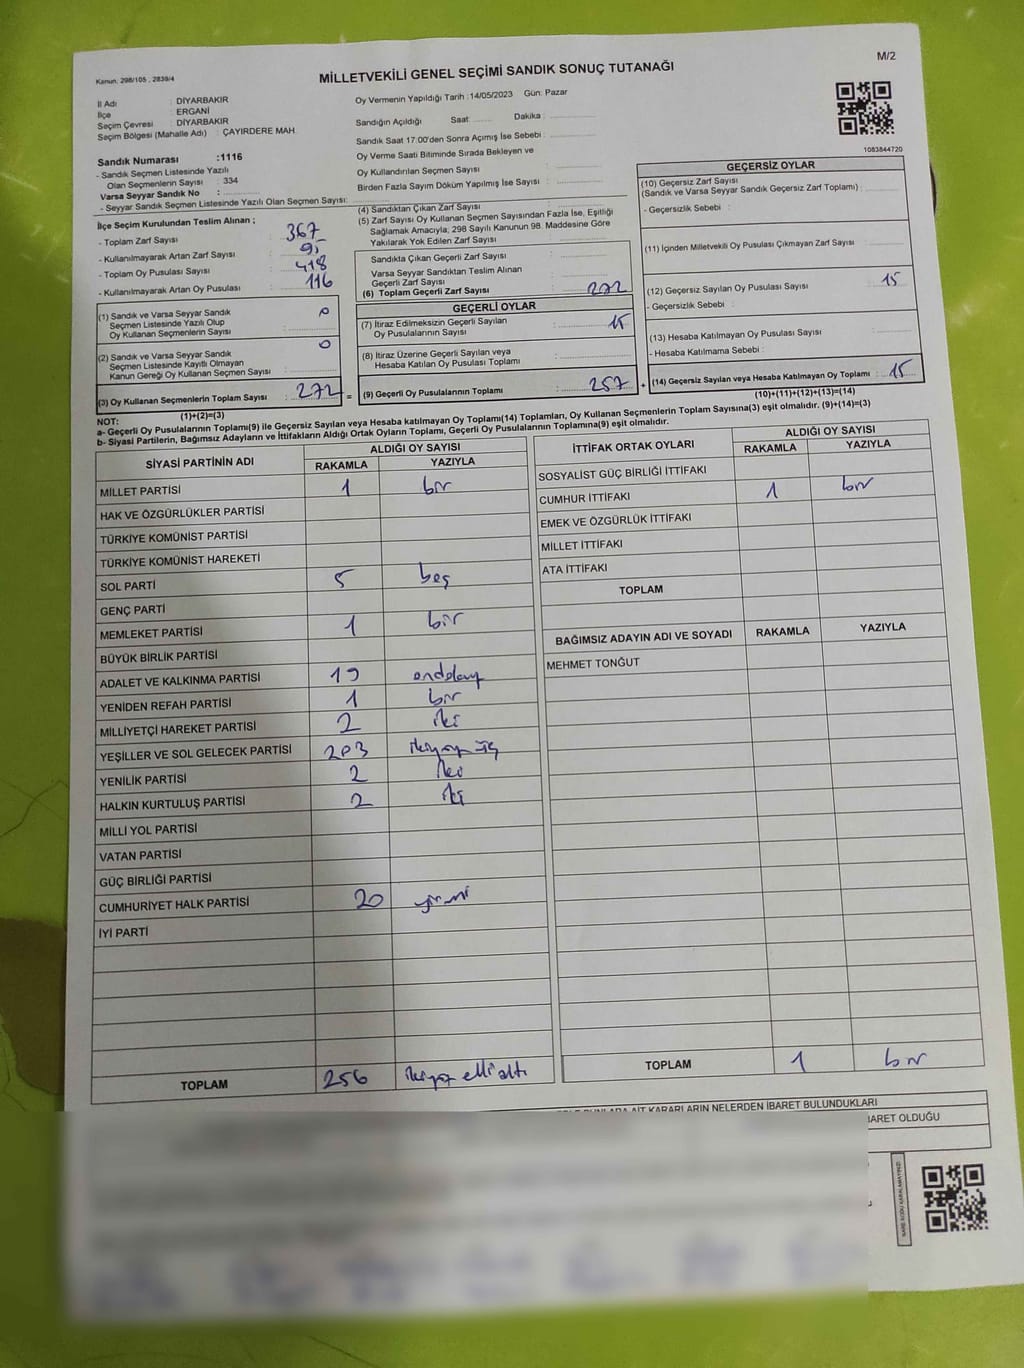 Kanun: 298/105 , 2839/4
MİLLETVEKİLİ GENEL SEÇİMİ SANDIK SONUÇ TUTANAĞI
M/2
İl Adı : DİYARBAKIR
İlçe : ERGANİ
Seçim Çevresi : DİYARBAKIR
Seçim Bölgesi (Mahalle Adı) : ÇAYIRDERE MAH.
Oy Vermenin Yapıldığı Tarih :14/05/2023 Gün: Pazar
Sandığın Açıldığı Saat: Dakika :
Sandık Saat 17:00'den Sonra Açımış İse Sebebi :
Oy Verme Saati Bitiminde Sırada Bekleyen ve
Oy Kullandırılan Seçmen Sayısı :
Birden Fazla Sayım Döküm Yapılmış İse Sayısı :
1083844720
Sandık Numarası :1116
- Sandık Seçmen Listesinde Yazılı
Olan Seçmenlerin Sayısı : 334
Varsa Seyyar Sandık No :
- Seyyar Sandık Seçmen Listesinde Yazılı Olan Seçmen Sayısı:
İlçe Seçim Kurulundan Teslim Alınan ;
- Toplam Zarf Sayısı : 367
- Kullanılmayarak Artan Zarf Sayısı :
- Toplam Oy Pusulası Sayısı : 418
- Kullanılmayarak Artan Oy Pusulası : 116
(1) Sandık ve Varsa Seyyar Sandık
Seçmen Listesinde Yazılı Olup
Oy Kullanan Seçmenlerin Sayısı : 0
(2) Sandık ve Varsa Seyyar Sandık
Seçmen Listesinde Kayıtlı Olmayan
Kanun Gereği Oy Kullanan Seçmen Sayısı : 0
(3) Oy Kullanan Seçmenlerin Toplam Sayısı : 272 =
(1)+(2)=(3)
(4) Sandıktan Çıkan Zarf Sayısı :
(5) Zarf Sayısı Oy Kullanan Seçmen Sayısından Fazla İse, Eşitliği
Sağlamak Amacıyla; 298 Sayılı Kanunun 98. Maddesine Göre
Yakılarak Yok Edilen Zarf Sayısı :
Sandıkta Çıkan Geçerli Zarf Sayısı :
Varsa Seyyar Sandıktan Teslim Alınan
Geçerli Zarf Sayısı :
(6) Toplam Geçerli Zarf Sayısı : 272
GEÇERLİ OYLAR
(7) İtiraz Edilmeksizin Geçerli Sayılan
Oy Pusulalarının Sayısı : 15
(8) İtiraz Üzerine Geçerli Sayılan veya
Hesaba Katılan Oy Pusulası Toplamı :
(9) Geçerli Oy Pusulalarının Toplamı : 257 +
GEÇERSİZ OYLAR
(10) Geçersiz Zarf Sayısı
(Sandık ve Varsa Seyyar Sandık Geçersiz Zarf Toplamı) :
- Geçersizlik Sebebi :
(11) İçinden Milletvekili Oy Pusulası Çıkmayan Zarf Sayısı :
(12) Geçersiz Sayılan Oy Pusulası Sayısı : 15
- Geçersizlik Sebebi :
(13) Hesaba Katılmayan Oy Pusulası Sayısı :
- Hesaba Katılmama Sebebi :
(14) Geçersiz Sayılan veya Hesaba Katılmayan Oy Toplamı : 15
(10)+(11)+(12)+(13)=(14)
NOT:
a- Geçerli Oy Pusulalarının Toplamı(9) ile Geçersiz Sayılan veya Hesaba katılmayan Oy Toplamı(14) Toplamları, Oy Kullanan Seçmenlerin Toplam Sayısına(3) eşit olmalıdır. (9)+(14)=(3)
b- Siyasi Partilerin, Bağımsız Adayların ve İttifakların Aldığı Ortak Oyların Toplamı, Geçerli Oy Pusulalarının Toplamına(9) eşit olmalıdır.
SİYASİ PARTİNİN ADI ALDIĞI OY SAYISI
RAKAMLA YAZIYLA
MİLLET PARTİSİ 1 bir
HAK VE ÖZGÜRLÜKLER PARTİSİ
TÜRKİYE KOMÜNİST PARTİSİ
TÜRKİYE KOMÜNİST HAREKETİ
SOL PARTİ 5 beş
GENÇ PARTİ
MEMLEKET PARTİSİ 1 bir
BÜYÜK BİRLİK PARTİSİ
ADALET VE KALKINMA PARTİSİ 19
YENİDEN REFAH PARTİSİ 1 bir
MİLLİYETÇİ HAREKET PARTİSİ 2 iki
YEŞİLLER VE SOL GELECEK PARTİSİ 203 ikiyüz üç
YENİLİK PARTİSİ 2 iki
HALKIN KURTULUŞ PARTİSİ 2 iki
MİLLİ YOL PARTİSİ
VATAN PARTİSİ
GÜÇ BİRLİĞİ PARTİSİ
CUMHURİYET HALK PARTİSİ 20 yirmi
İYİ PARTİ
TOPLAM 256 ikiyüz elli altı
İTTİFAK ORTAK OYLARI ALDIĞI OY SAYISI
RAKAMLA YAZIYLA
SOSYALİST GÜÇ BİRLİĞİ İTTİFAKI
CUMHUR İTTİFAKI 1 bir
EMEK VE ÖZGÜRLÜK İTTİFAKI
MİLLET İTTİFAKI
ATA İTTİFAKI
TOPLAM
BAĞIMSIZ ADAYIN ADI VE SOYADI RAKAMLA YAZIYLA
MEHMET TONĞUT
TOPLAM 1 bir
AİT KARARLARIN NELERDEN İBARET BULUNDUKLARI
İBARET OLDUĞU